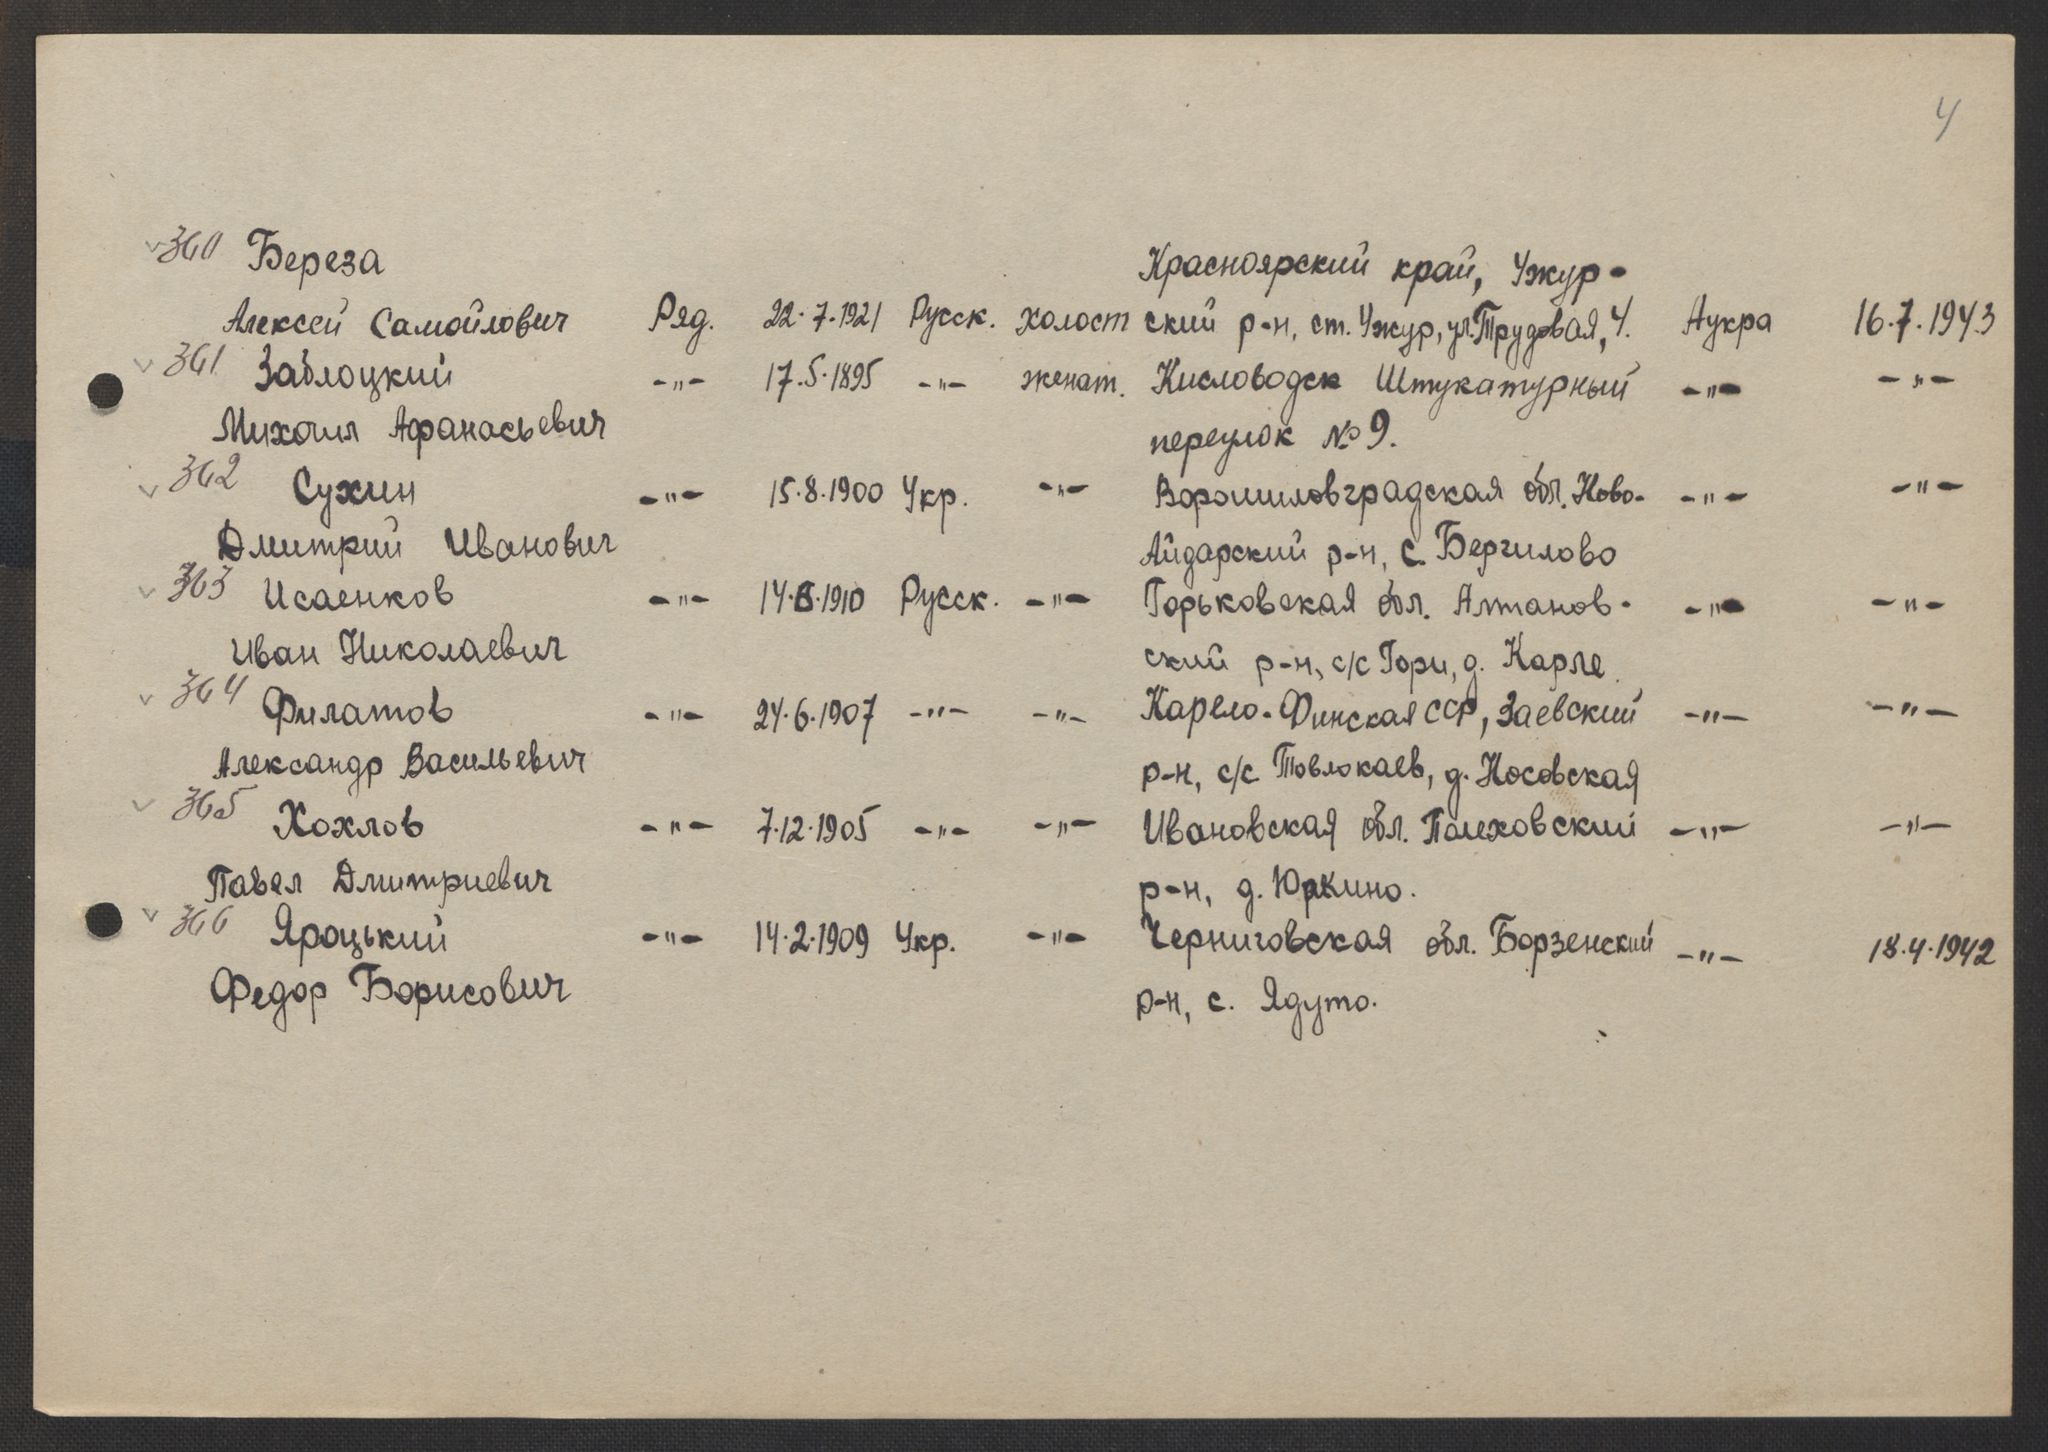 4
360 Береза Красноярский край, Ужур-
Алексей Самойлович Ряд. 22.7.1921 Русск. холост ский р-н, ст. Ужур, ул. Трудовая, 4. Аукра 16.7.1943
361 Заблоцкий -"- 17.5.1895 -"- женат. Кисловодск Штукатурный -"- -"-
Михаил Афанасьевич переулок №9.
362 Сухин -"- 15.8.1900 Укр. -"- Ворошиловградская обл. Ново- -"- -"-
Дмитрий Иванович Айдарский р-н, с. Бергилово
363 Исаенков -"- 14.8.1910 Русск. -"- Горьковская обл. Алтанов- -"- -"-
Иван Николаевич ский р-н, с/с Гори, д. Карле
364 Филатов -"- 24.6.1907 -"- -"- Карело-Финская ССР, Заевский -"- -"-
Александр Васильевич р-н, с/с Товлокаев, д. Носовская
365 Хохлов -"- 7.12.1905 -"- -"- Ивановская обл. Палеховский -"- -"-
Павел Дмитриевич р-н, д. Юркино.
366 Яроцький -"- 14.2.1909 Укр. -"- Черниговская обл. Борзенский -"- 18.4.1942
Федор Борисович р-н, с. Ядуто.